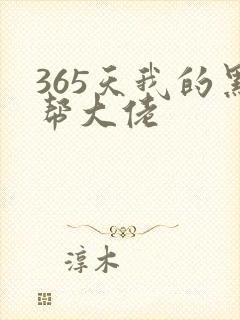 365天我的黑
帮大佬
淳木